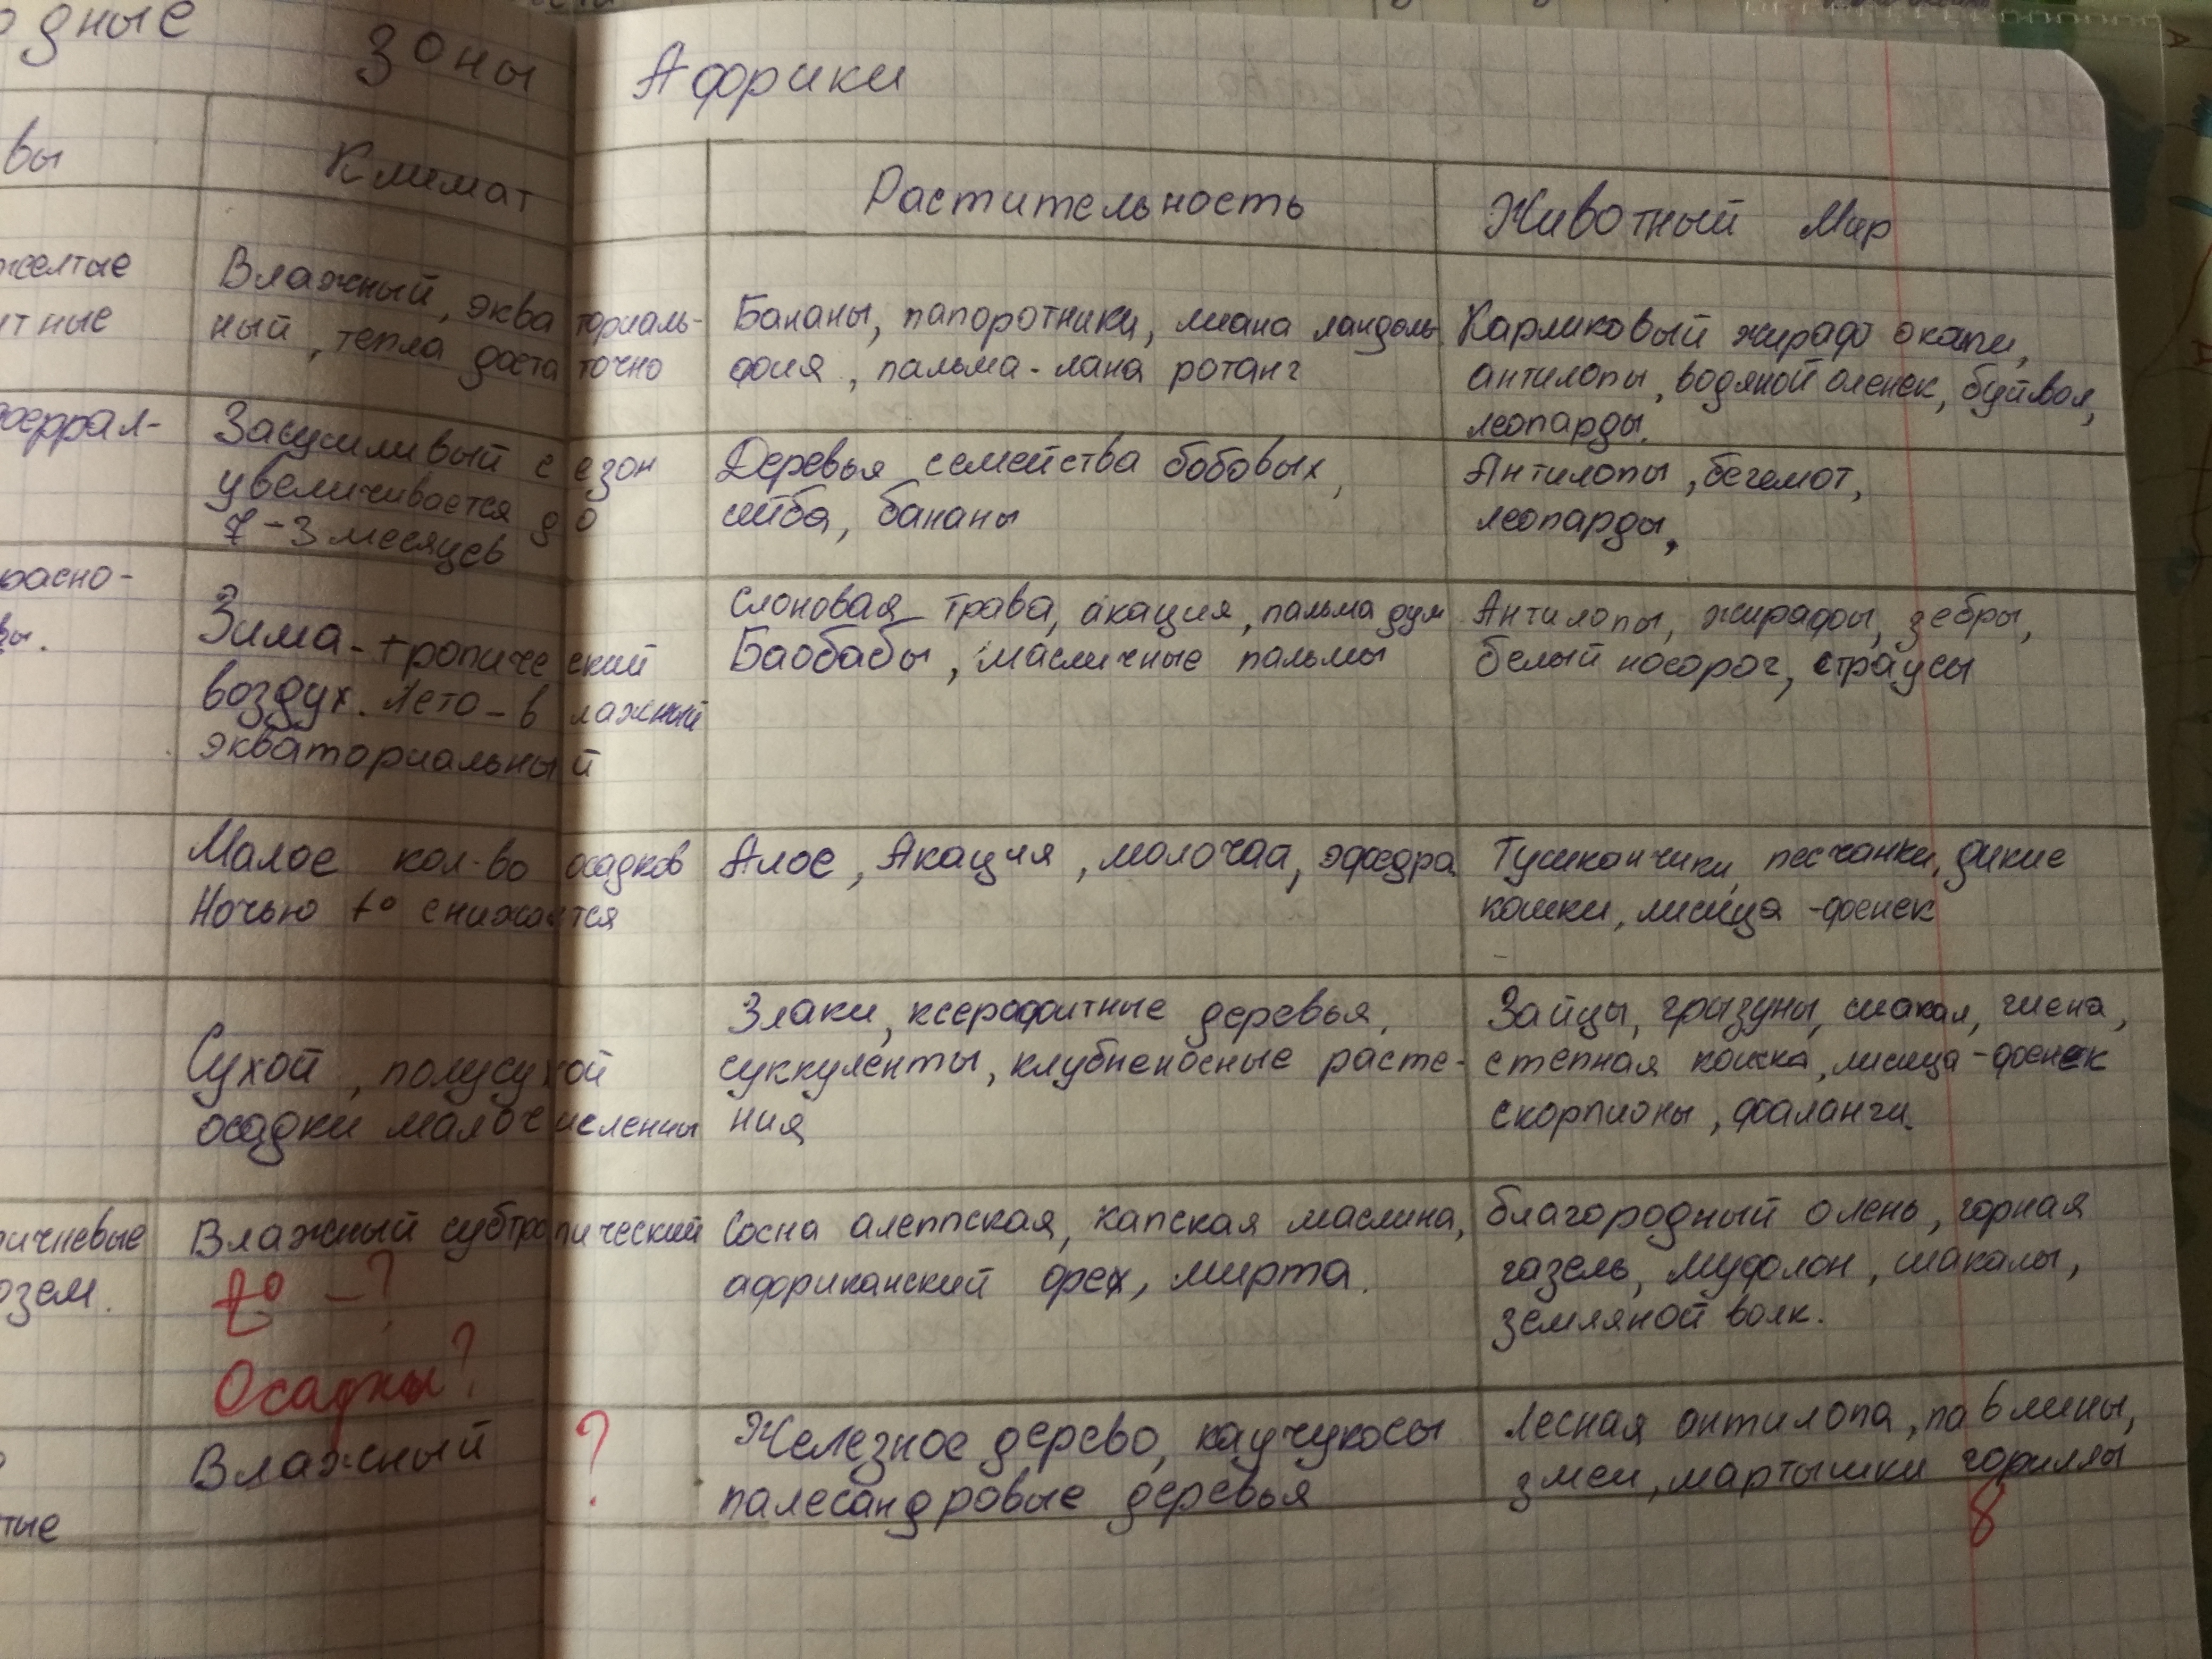 одные зоны Африки
вы Климат Растительность Животный Мир
желтые Влажный, экваториаль- Бананы, папоротники, лиана ландоль Карликовый жираф окапи,
итные ный, тепла достаточно фия, пальма-лана ротанг антилопы, водяной оленек, буйвол,
леопарды.
ферррал- Засушливый сезон Деревья семейства бобовых, Антилопы, бегемот,
увеличивается до сейба, бананы леопарды,
7-3 месяцев
расно- Слоновая трава, акация, пальма дум Антилопы, жирафы, зебры,
вы. Зима-тропический Баобабы, масличные пальмы белый носорог, страусы
воздух. Лето-влажный
экваториальный
Малое кол-во осадков Алое, Акация, молочаа, эфедра Тушканчики, песчанки, дикие
Ночью t° снижается кошки, лисица-фенек
Злаки, ксерофитные деревья, Зайцы, грызуны, шакал, гиена,
Сухой, полусухой суккуленты, клубненосные расте- степная кошка, лисица-фенек
осадки малочисленны ния скорпионы, фаланги.
ичневые Влажный субтропический Сосна алеппская, капская маслина, благородный олень, горная
озем. t° -? африканский орех, мирта. газель, муфлон, шакалы,
земляной волк.
Осадки?
Влажный ? Железное дерево, каучукосы Лесная антилопа, павлины,
палесандровые деревья змеи, мартышки гориллы
тые 8